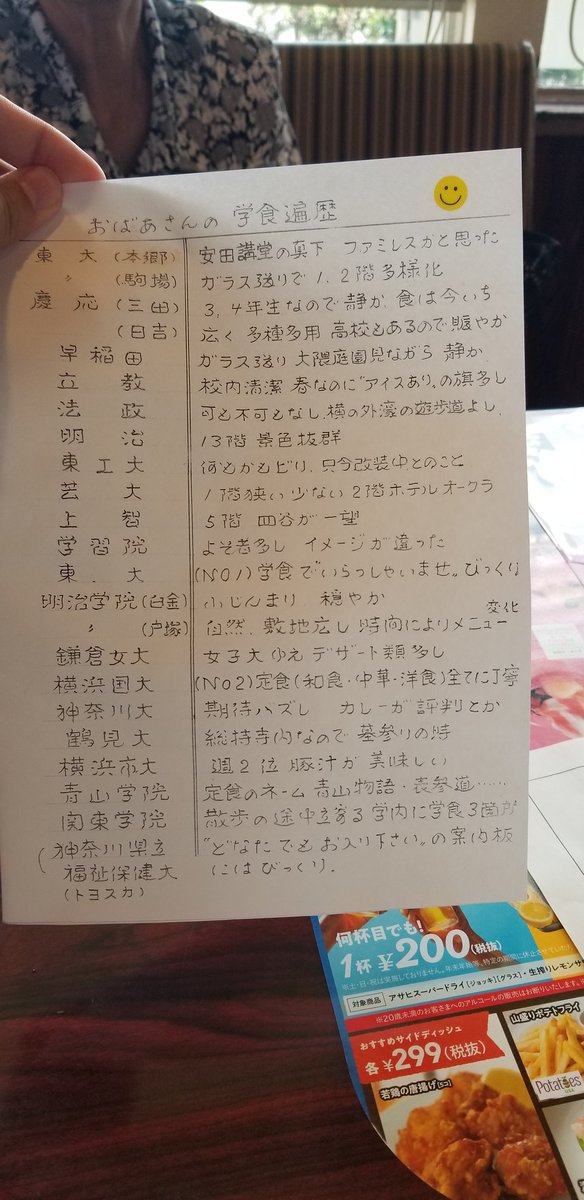 おばあさんの 学食遍歴
東大(本郷) 安田講堂の真下 ファミレスかと思った
〃(駒場) ガラス張りで1,2階多様化
慶応(三田) 3,4年生なので静か、食は今いち
(日吉) 広く 多種多用 高校もあるので賑やか
早稲田 ガラス張り 大隈庭園見ながら 静か、
立教 校内清潔 春なのに"アイスあり"の旗多し
法政 可も不可もなし、横の外濠の遊歩道よし、
明治 13階 景色抜群
東工大 何もかもピリ、只今改装中とのこと
芸大 1階狭い 少ない 2階ホテルオークラ
上智 5階 四谷が一望
学習院 よそ者多し イメージが違った
東.大 (NO1)学食でいらっしゃいませ。びっくり
明治学院(白金) 小じんまり 穏やか
〃(戸塚) 自然、敷地広し 時間によりメニュー変化
鎌倉女大 女子大ゆえ デザート類多し
横浜国大 (No2)定食(和食・中華・洋食)全てに丁寧
神奈川大 期待ハズレ カレーが評判とか
鶴見大 総持寺内なので 墓参りの時
横浜市大 週2位 豚汁が美味しい
青山学院 定食のネーム 青山物語・表参道……
関東学院 散歩の途中立寄る 学内に学食3箇所
(神奈川県立福祉保健大(トヨスカ) "どなたでもお入り下さい"の案内板
にはびっくり.
何杯目でも!
1杯¥200(税抜)
※土・日・祝は実施しておりません。
対象商品 アサヒスーパードライ[ジョッキ][グラス]・生搾りレモンサ
※20歳未満のお客さまへのアルコールの販売はお断りいたします。
おすすめサイドディッシュ
各¥299(税抜)
若鶏の唐揚げ(5コ)
山盛りポテトフライ
Potatoes